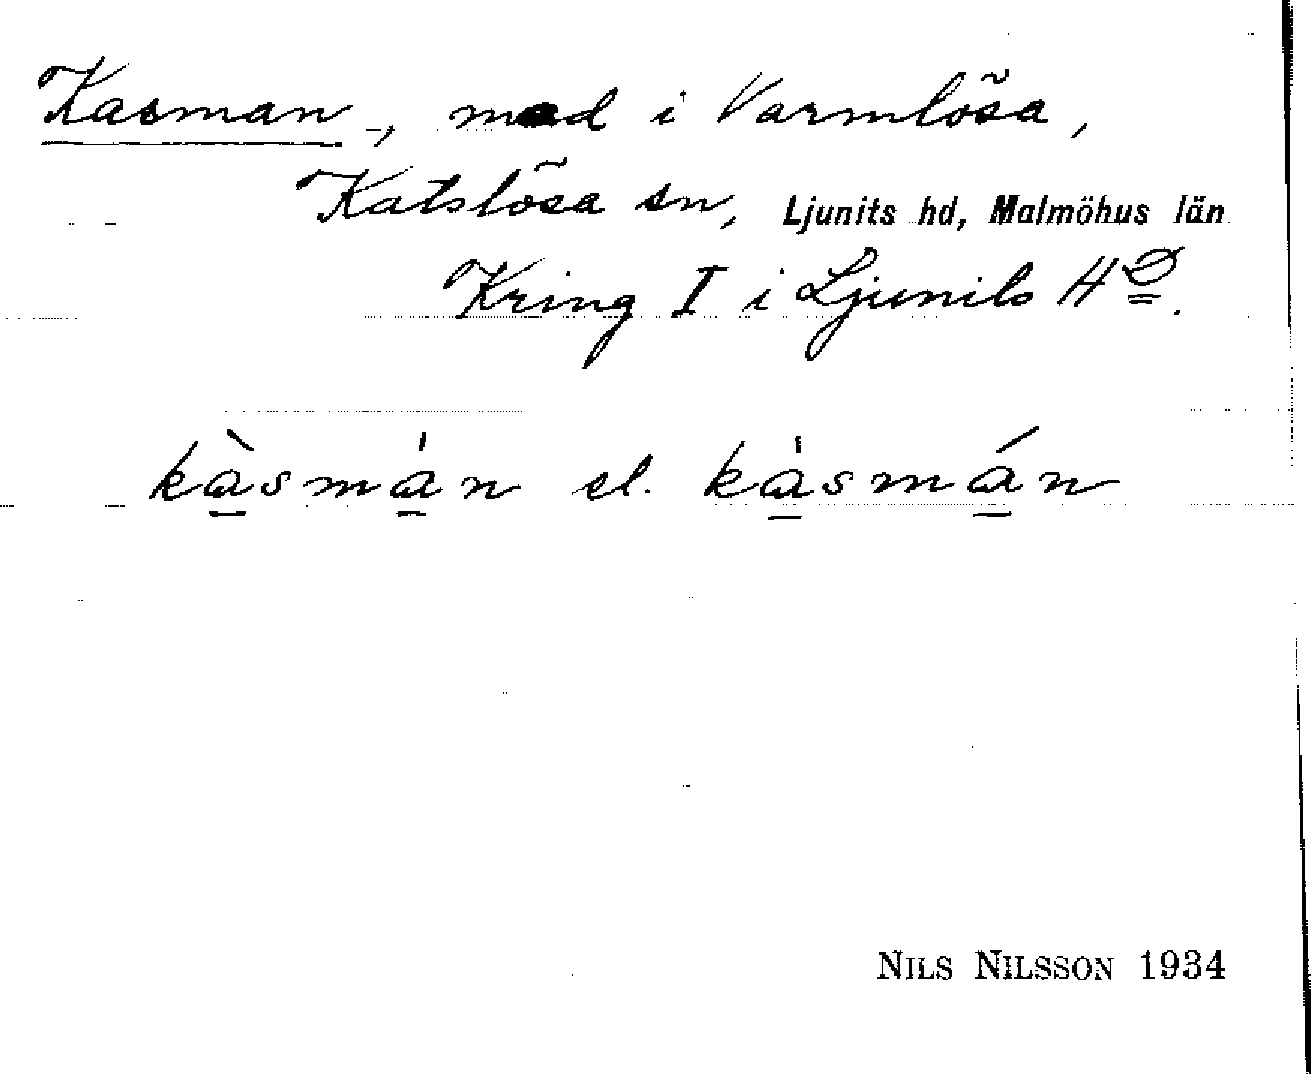 Kasman, mad i Varmlösa,
Katslösa sn, Ljunits hd, Malmöhus län
Kring I i Ljunits H<sup>D</sup>.
kà̱sma̱̍n el. ka̱̍smá̱n
NILS NILSSON 1934